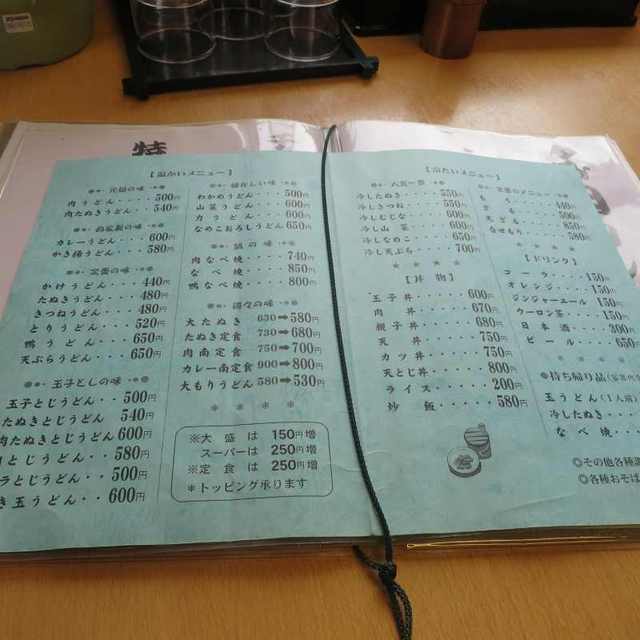 特
【温かいメニュー】
元祖の味
肉うどん・・・・500円
肉たぬきうどん・・540円
自家製の味
カレーうどん・・・600円
かき揚うどん・・・580円
定番の味
かけうどん・・・・440円
たぬきうどん・・・480円
きつねうどん・・・480円
とりうどん・・・・520円
鴨うどん・・・・650円
天ぷらうどん・・・650円
玉子とじの味
玉子とじうどん・・500円
たぬきとじうどん 540円
肉たぬきとじうどん600円
とじうどん・・580円
とじうどん・・500円
き玉うどん・・600円
わかめうどん・・・500円
山菜うどん・・・・600円
力うどん・・・・600円
なめこおろしうどん650円
鍋の味
肉なべ焼・・・・740円
なべ焼・・・・850円
鴨なべ焼・・・・800円
大たぬき 630➡580円
たぬき定食 730➡680円
肉南定食 750➡700円
カレー南定食 900➡800円
大もりうどん 580➡530円
※大盛は 150円増
スーパーは 250円増
※定食は 250円増
＊トッピング承ります
【冷たいメニュー】
冷したぬき・・・・550円
冷しきつね・・・・550円
冷しむじな・・・・600円
冷し山菜・・・・600円
冷しなめこ・・・・650円
冷し天ぷら・・・・700円
【丼物】
玉子丼・・・・・600円
肉丼・・・・・670円
親子丼・・・・・680円
天丼・・・・・750円
カツ丼・・・・・750円
天とじ丼・・・・800円
ライス・・・・・200円
炒飯・・・・・580円
定番のメニュー
もり・・・・440円
天ざる・・・・850円
なせもり・・・・580円
【ドリンク】
コーラ・・・・150円
オレンジ・・・・150円
ジンジャーエール 150円
ウーロン茶・・・150円
日本酒・・・・390円
ビール・・・・650円
※持ち帰り品
玉うどん(1人前)
冷したぬき・・・
なべ焼・・・・
◎その他各種
◎各種おそば